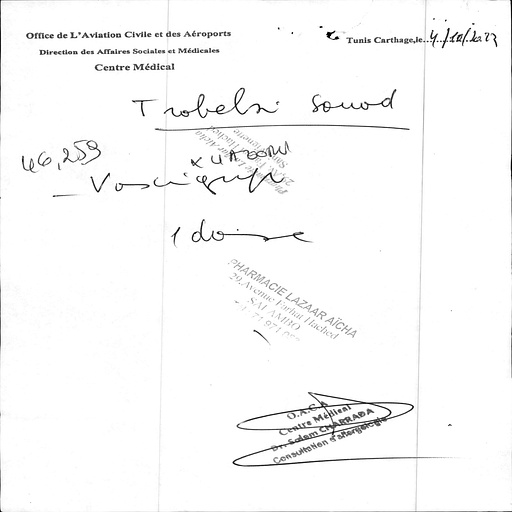 Office de L'Aviation Civile et des Aéroports
Direction des Affaires Sociales et Médicales
Centre Médical
Tunis Carthage,le
Trabelsi Souad
46,259
- Vaxigrip
1 dose
PHARMACIE LAZAAR AÏCHA
29, Avenue Farhat Hached
SALAMBO
O.A.C.A
Centre Médical
Dr. Salem CHARRADA
Consultation d'allergologie